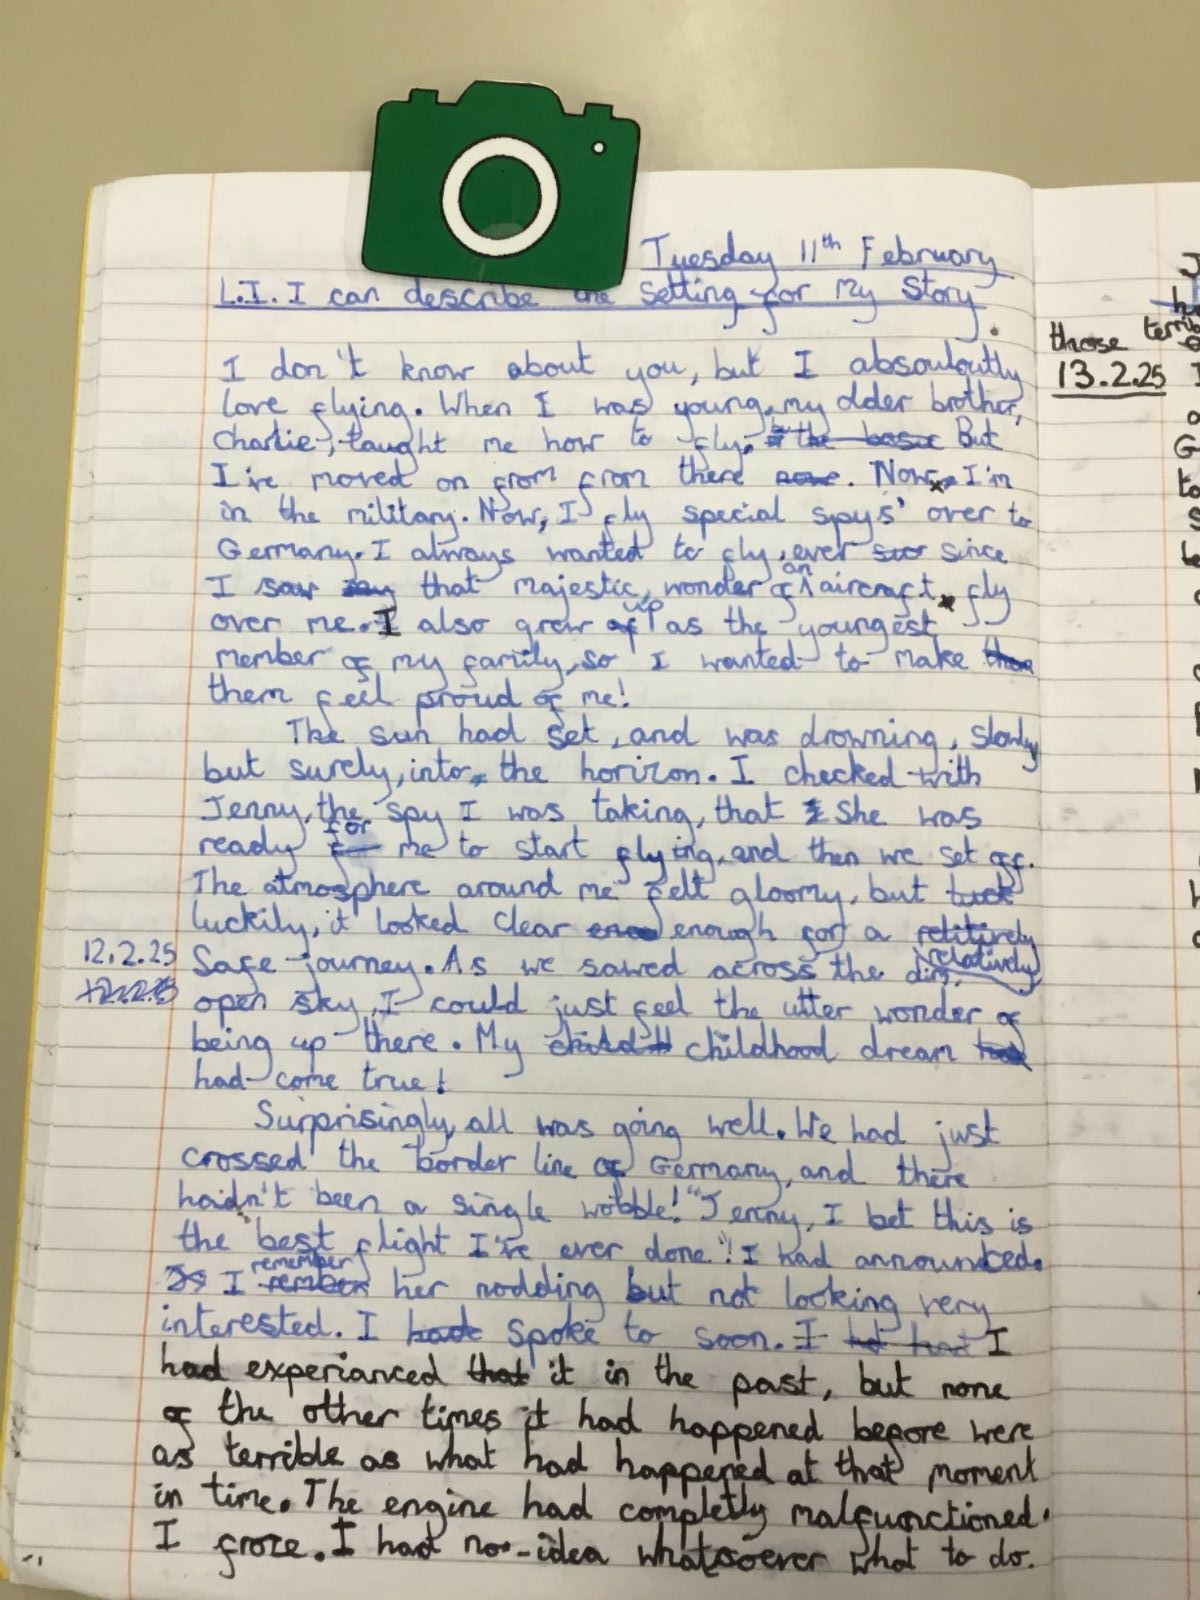 Tuesday 11th February
L.I. I can describe the setting for my story.
I don't know about you, but I absouloutly
love flying. When I was young, my older brother,
Charlie, taught me how to fly. But
I've moved on from from there. Now, I'm
in the military. Now, I fly special spys' over to
Germany. I always wanted to fly, ever since
I saw that majestic, wonder of an aircraft fly
over me. I also grew up as the youngest
member of my family, so I wanted to make
them feel proud of me!
The sun had set, and was drowning, slowly
but surely, into the horizon. I checked with
Jenny, the spy I was taking, that she was
ready for me to start flying, and then we set off.
The atmosphere around me felt gloomy, but
luckily, it looked clear enough for a relatively
12.2.25
safe journey. As we sawed across the dim,
open sky, I could just feel the utter wonder of
being up there. My childhood dream
had come true!
Surprisingly, all was going well. We had just
crossed the border line of Germany, and there
hadn't been a single wobble! "Jenny, I bet this is
the best flight I've ever done"! I had announced.
I remember her nodding but not looking very
interested. I spoke to soon. I
had experianced it in the past, but none
of the other times it had happened before were
as terrible as what had happened at that moment
in time. The engine had completly malfunctioned.
I froze. I had no-idea whatsoever what to do.
those
13.2.25